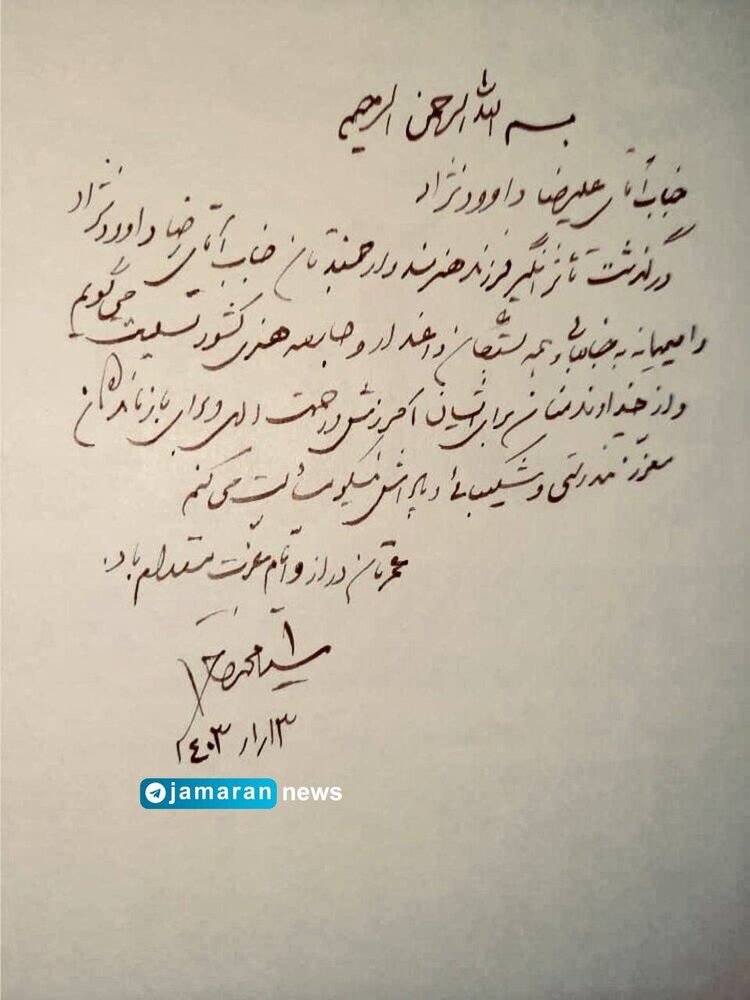 بسم الله الرحمن الرحیم
جناب آقای علیرضا داوودنژاد
درگذشت تأثرانگیز فرزند هنرمند و ارجمندتان جناب آقای رضا داوودنژاد
را صمیمانه به جنابعالی و همه بستگان داغدار و جامعه هنری کشور تسلیت می‌گویم
و از خداوند منان برای ایشان آمرزش و رحمت الهی و برای بازماندگان
معزز تندرستی و شکیبائی و پاداش نیکو مسألت می‌کنم
عمرتان دراز و ایام عزت مستدام باد.
سید محمد خاتمی
۱۴۰۳/۱/۱۳
jamaran news